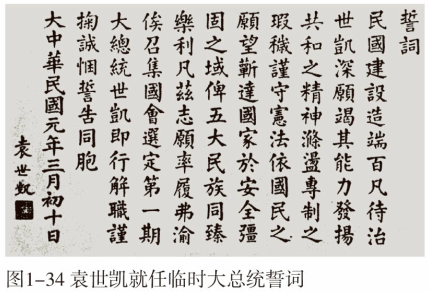 誓詞
民國建設造端百凡待治
世凱深願竭其能力發揚
共和之精神滌盪專制之
瑕穢謹守憲法依國民之
願望蘄達國家於安全彊
固之域俾五大民族同臻
樂利凡茲志願率履弗渝
俟召集國會選定第一期
大總統世凱即行解職謹
掬誠悃誓告同胞
大中華民國元年三月初十日
袁世凱
图1-34 袁世凯就任临时大总统誓词